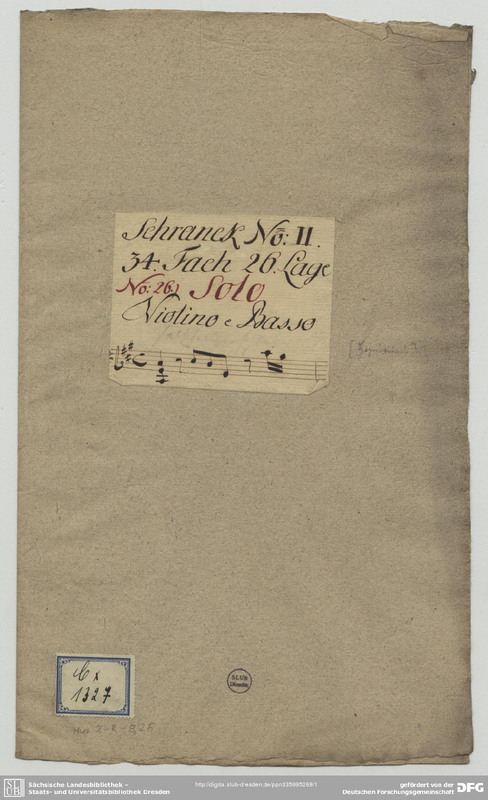 Schranck No: II.
34. Fach 26. Lage
No: 26.) Solo
Violino e Basso
Cx
1327
SLUB
Dresden
Mus. 2-R-8,25
SLUB
Sächsische Landesbibliothek –
Staats- und Universitätsbibliothek Dresden
http://digital.slub-dresden.de/ppn335995268/1
gefördert von der
Deutschen Forschungsgemeinschaft
DFG